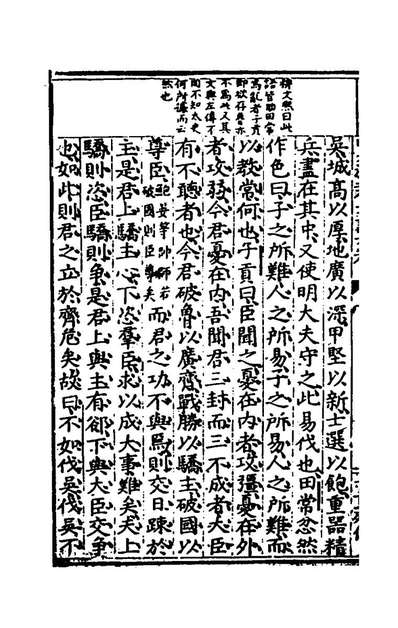 楊文熙曰此
皆田常
為亂者子貢
欲存魯亦
不為此又其
文與左傳不
同不知太史
何所據而云
然也
吳城高以厚地廣以深甲堅以新士選以飽重器精
兵盡在其中又使明大夫守之此易伐也田常忿然
作色曰子之所難人之所易子之所易人之所難而
以教常何也子貢曰臣聞之憂在內者攻彊憂在外
者攻弱今君憂在內吾聞君三封而三不成者大臣
有不聽者也今君破魯以廣齊戰勝以驕主破國以
尊臣鮑晏等帥師若破國則臣尊矣而君之功不與焉則交日疎於
主是君上驕主心下恣羣臣求以成大事難矣夫上
驕則恣臣驕則爭是君上與主有郤下與大臣交爭
也如此則君之立於齊危矣故曰不如伐吳伐吳不